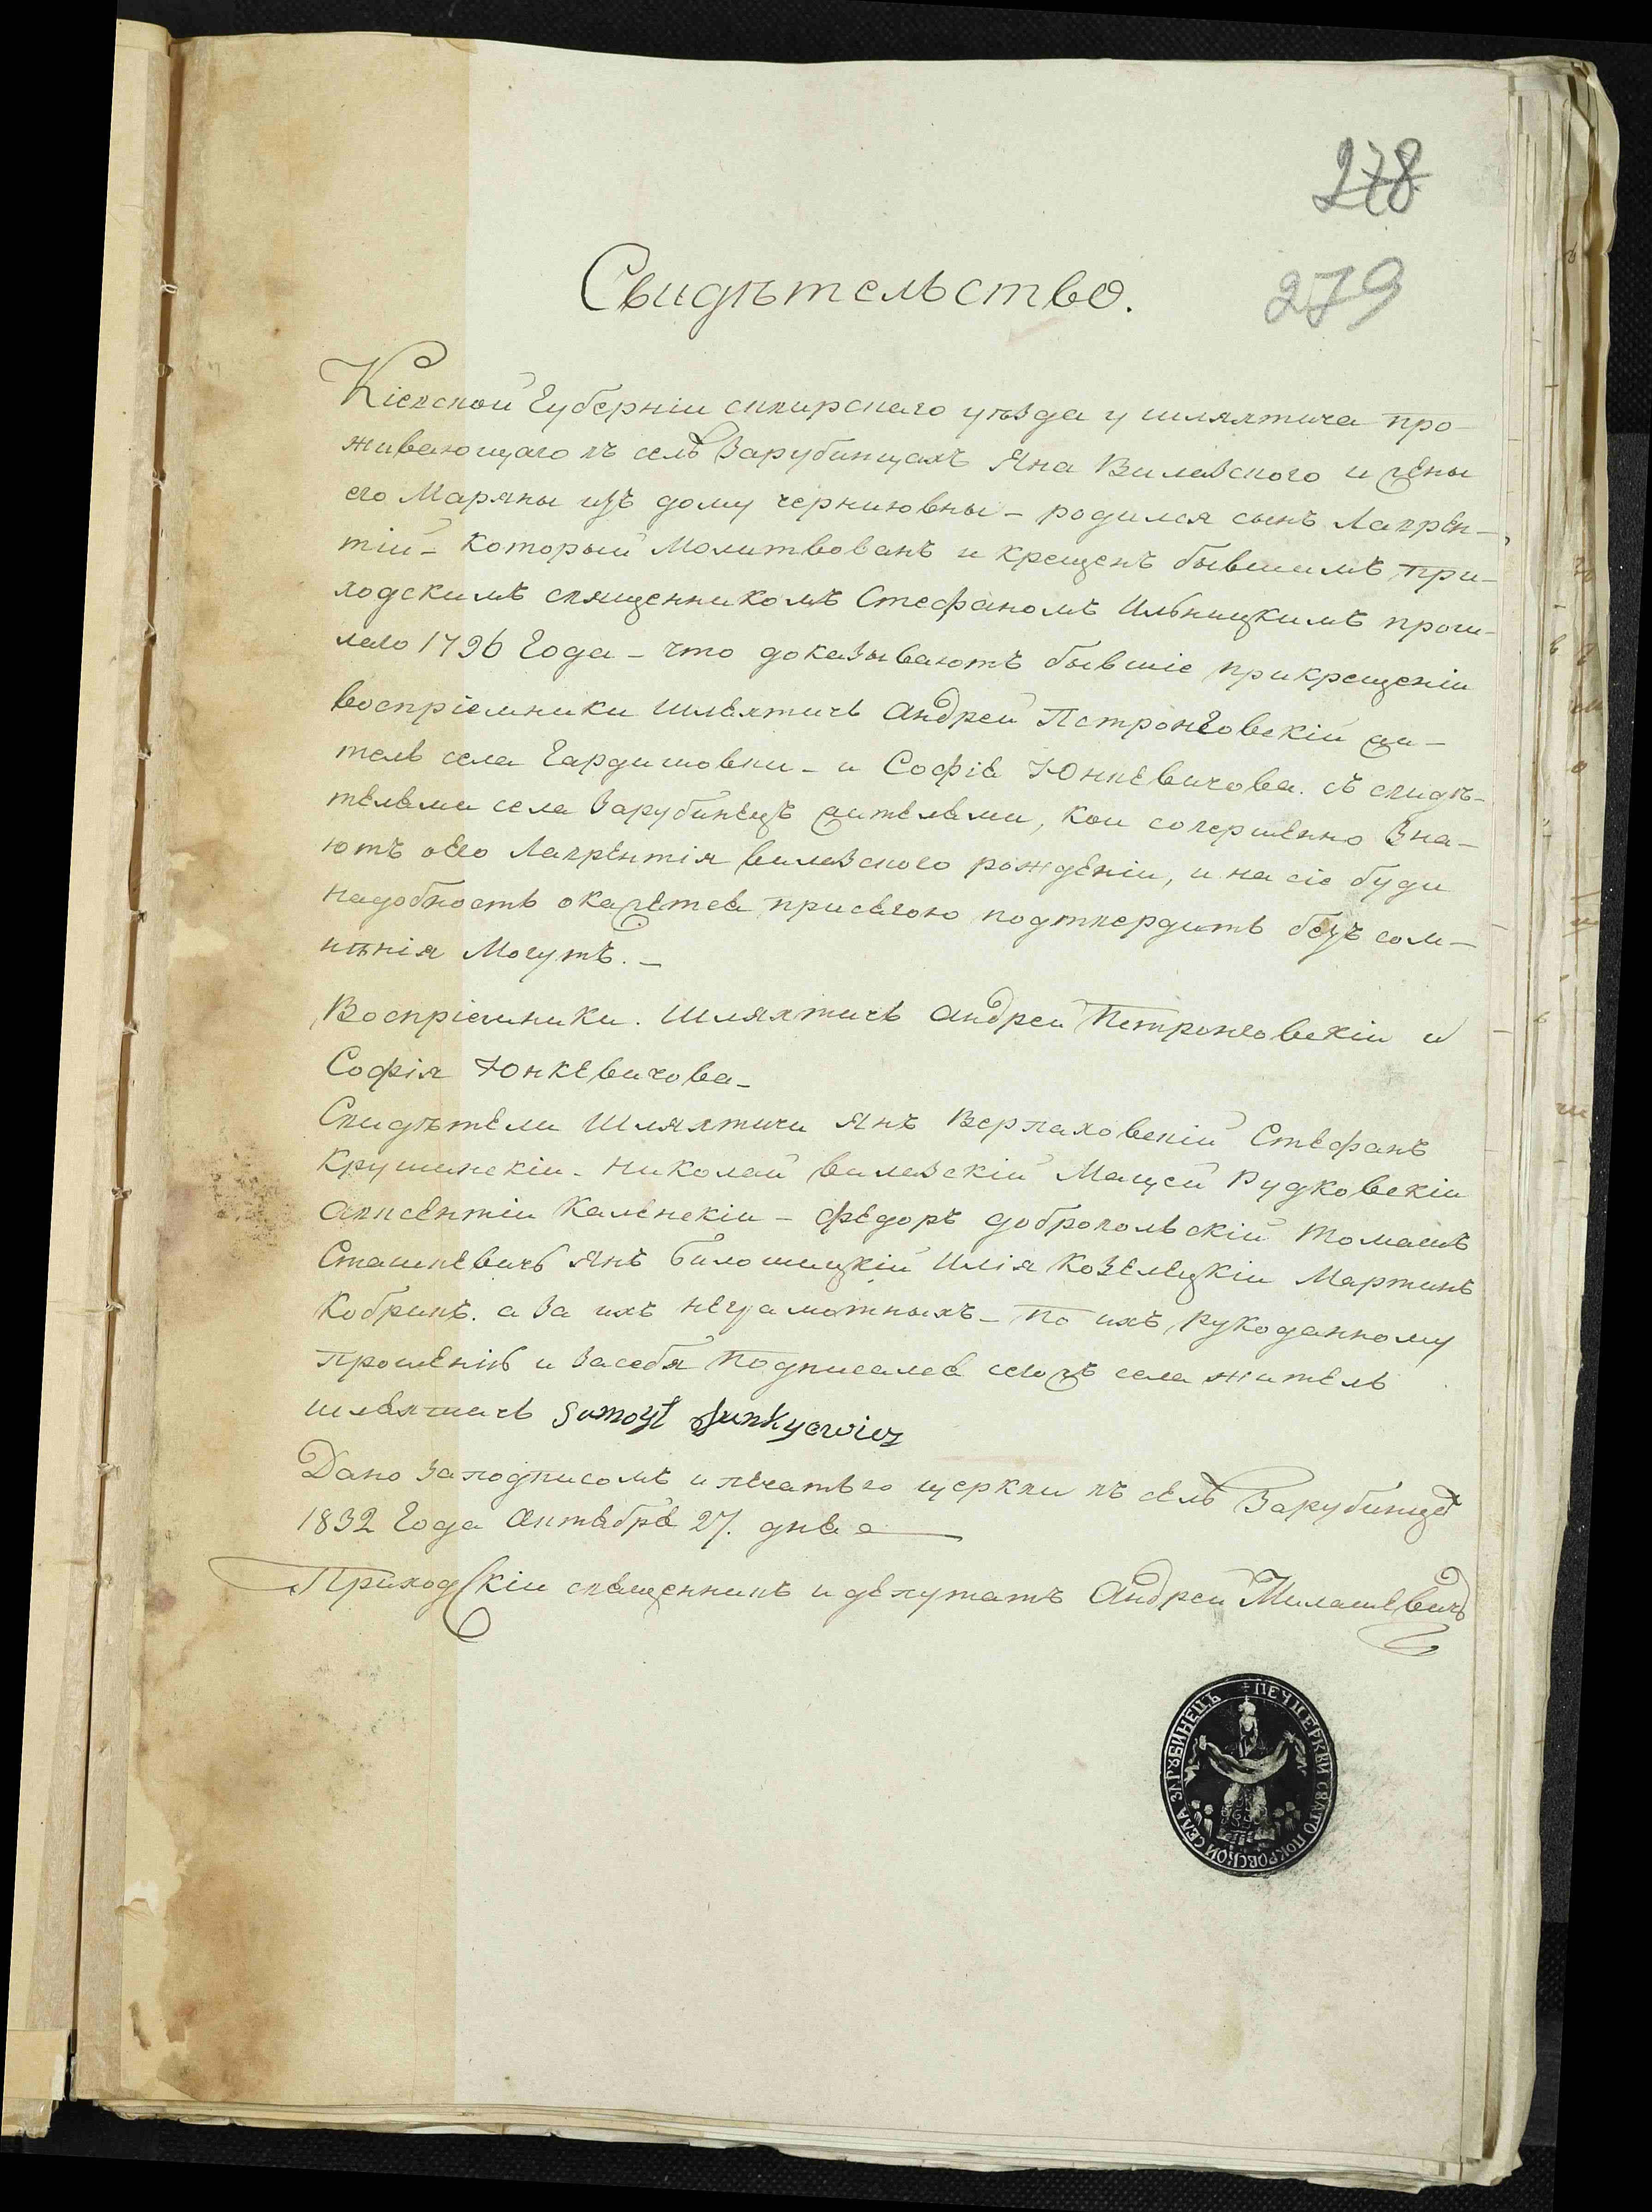 278
279
Свидѣтельство.
Кіевской Губерніи сквирскаго уѣзда у шляхтича про-
живающаго въ селѣ Зарубинцахъ Яна Вилевского и жены
его Маряны изъ дому черниювны - родился сынъ Лаврен-
тій - который Молитвованъ и крещенъ бывшимъ при-
ходскимъ священникомъ Стефаномъ Ильницкимъ прош-
лаго 1796 Года - что доказываютъ бывшіе прикрещеніи
воспріемники шляхтичь Андрей Петронговскій жи-
тель села Гардишовки - и Софія Юнкевичова. съ свидѣ-
телями села Зарубинецъ жителями, кои совершенно зна-
ютъ оего Лаврентія вилевского рожденіи, и на сіе буди
надобность окажется присягою подтвердить безъ сом-
нѣнія Могутъ. -
Воспріемники. Шляхтичь Андрей Петронговскій и
Софія Юнкевичова -
Свидѣтели Шляхтичи Янъ Верлаховскій Стефанъ
Крушинскій - Николай вилевскій Мацей Рудковскій
Авксентій Каленскій - Федоръ добропольскій Томашъ
Сташкевичь Янъ Билошицкій Илія Козелецкій Мартинъ
Кобринъ. а за ихъ неграмотныхъ - По ихъ рукоданному
Прошенію и засебя Подписался сегожъ села житель
шляхтичь Samoył Junkyewicz
Дано заподписомъ и печатью церкви въ селѣ Зарубинцѣ
1832 Года Октября 27. дня
Приходскій священникъ и депутатъ Андрей Милашевичь
ПЕЧ ЦЕРКВИ СВЯТО ПОКРОВСКОЙ СЕЛА ЗАРУБИНЕЦЪ